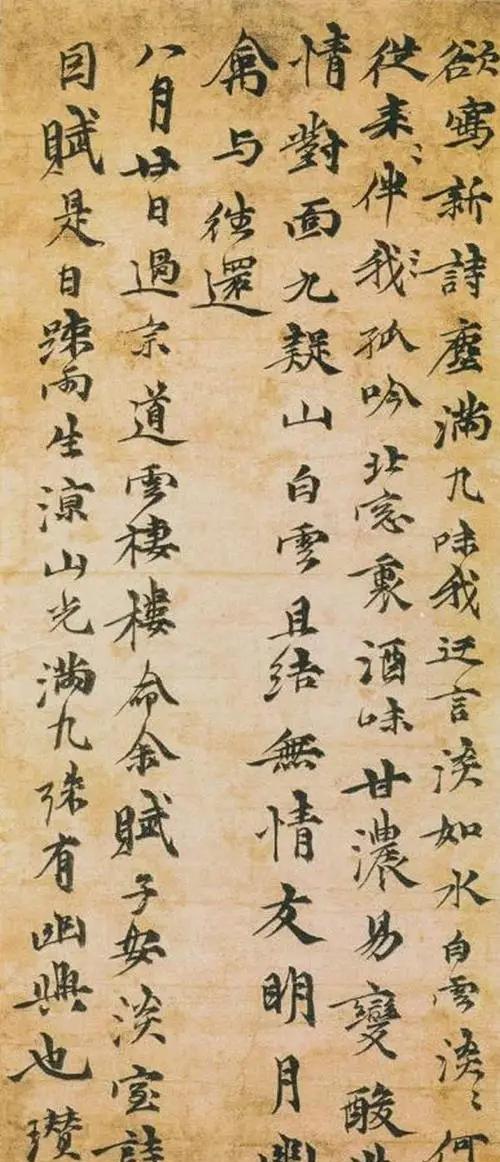 欲寫新詩塵滿几味我迂言淡如水白雲淡〻何
從来伴我孤吟北窓裏酒味甘濃易變酸世
情對面九疑山白雲且結無情友明月幽
禽与往還
八月廿日過宗道雲棲樓命余賦子安淡室詩
因賦是日踈雨生涼山光滿几殊有幽興也瓚